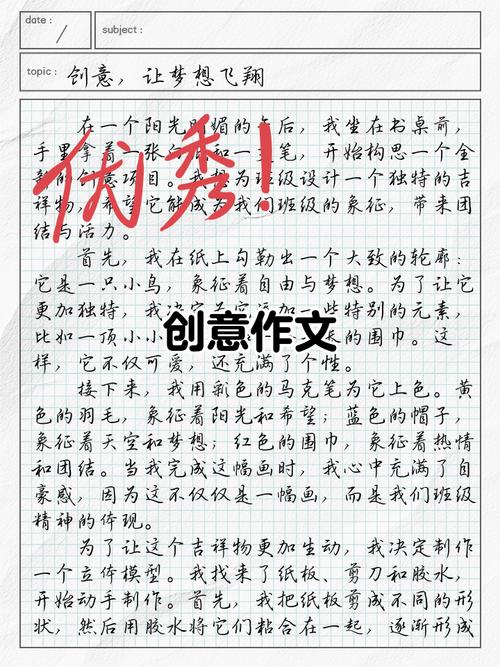 date :
subject :
topic : 创意，让梦想飞翔
在一个阳光明媚的午后，我坐在书桌前，
手里拿着一张白纸和一支笔，开始构思一个全
新的创意项目。我想为班级设计一个独特的吉
祥物，希望它能成为我们班级的象征，带来团
结与活力。
优秀！
首先，我在纸上勾勒出一个大致的轮廓：
它是一只小鸟，象征着自由与梦想。为了让它
更加独特，我决定为它添加一些特别的元素，
比如一顶小小的围巾。这
创意作文
样，它不仅可爱，还充满了个性。
接下来，我用彩色的马克笔为它上色。黄
色的羽毛，象征着阳光和希望；蓝色的帽子，
象征着天空和梦想；红色的围巾，象征着热情
和团结。当我完成这幅画时，我心中充满了自
豪感，因为这不仅仅是一幅画，而是我们班级
精神的体现。
为了让这个吉祥物更加生动，我决定制作
一个立体模型。我找来了纸板、剪刀和胶水，
开始动手制作。首先，我把纸板剪成不同的形
状，然后用胶水将它们粘合在一起，逐渐形成